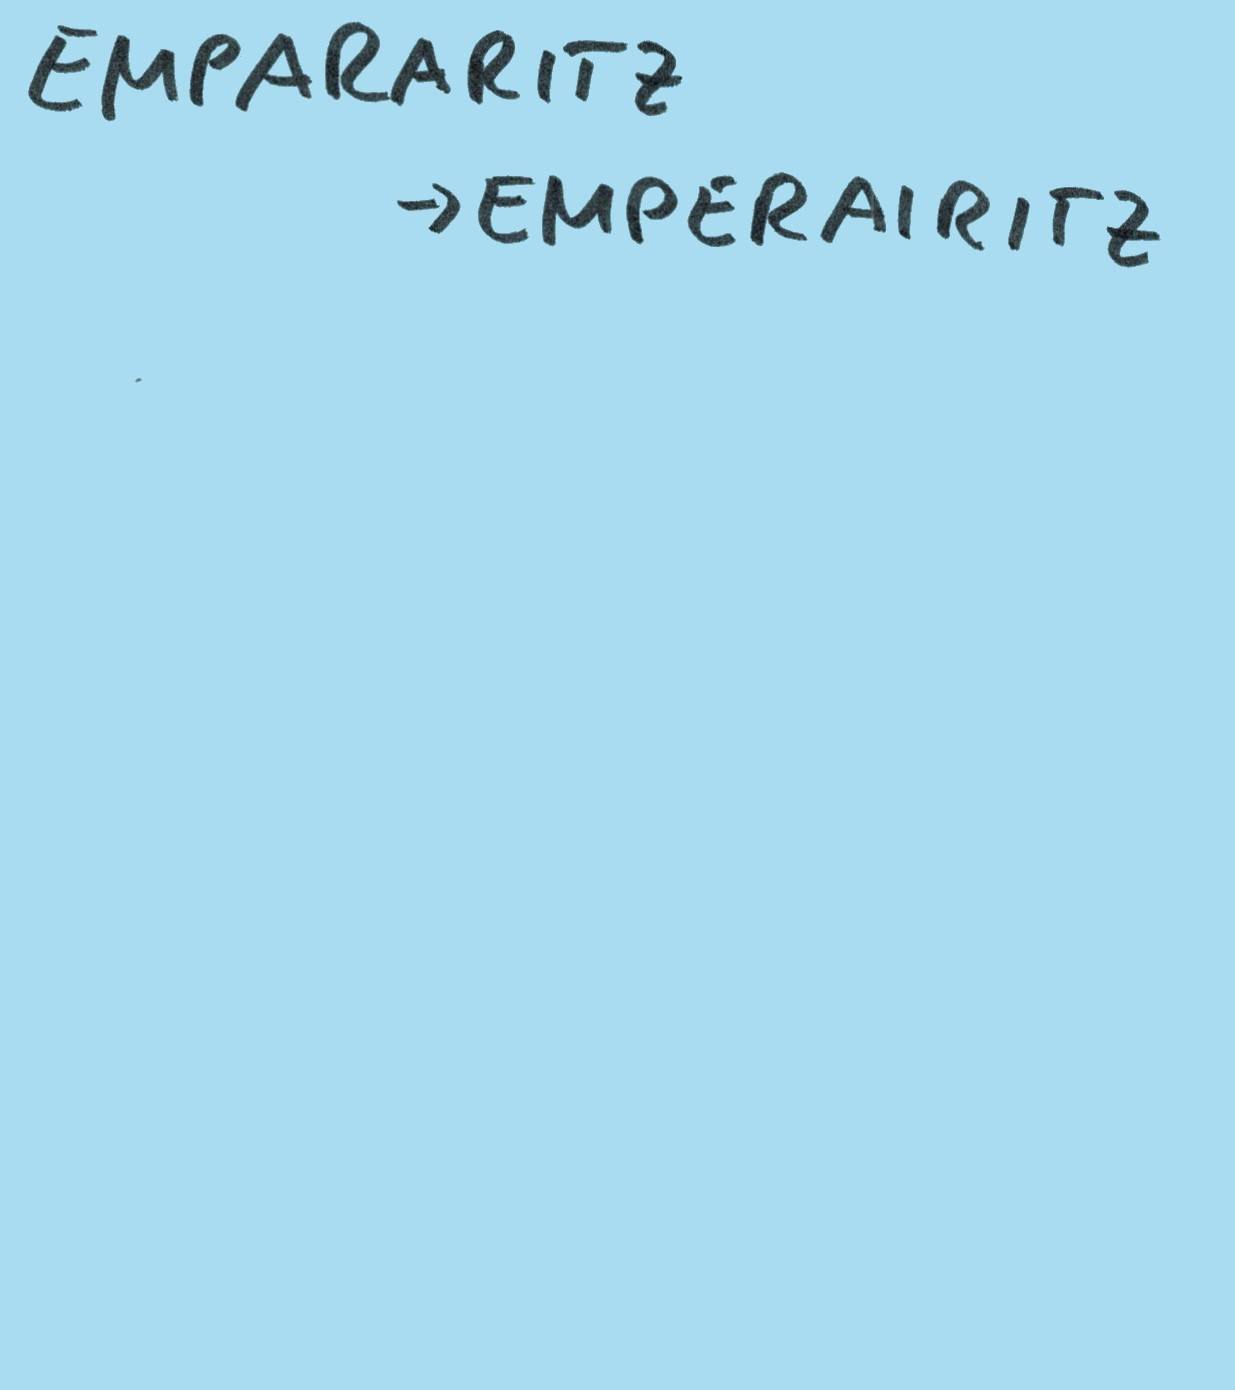 EMPARARITZ
→EMPERAIRITZ